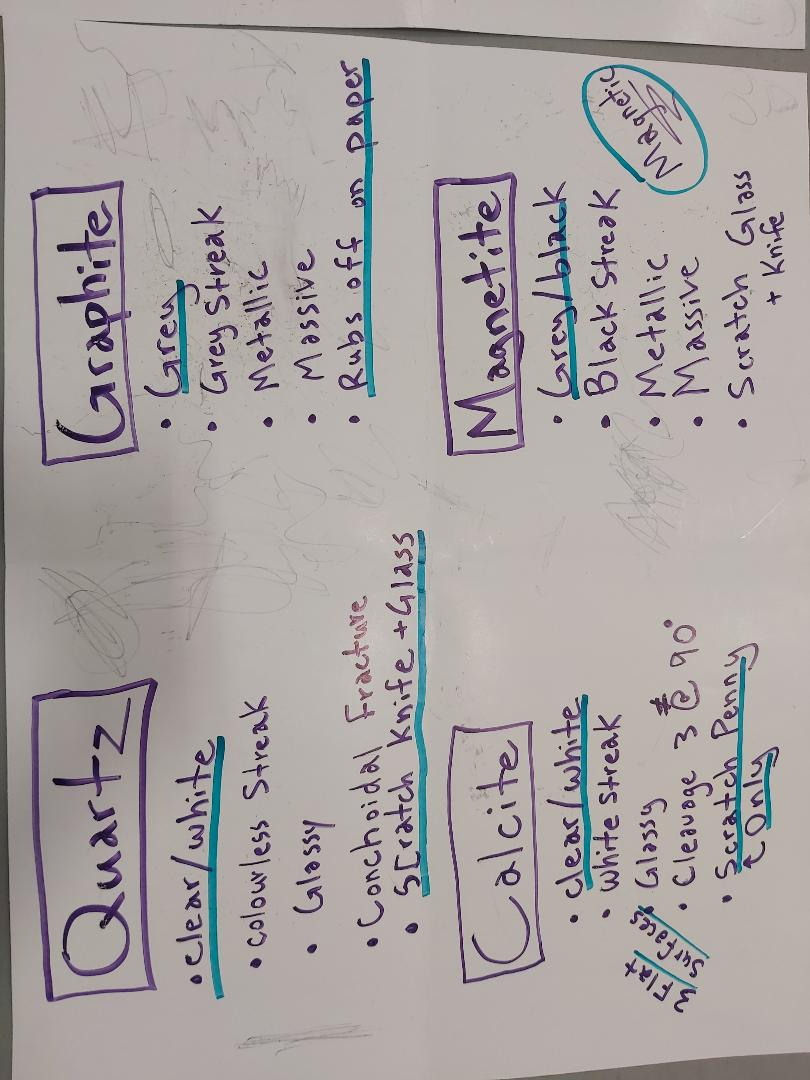 Quartz
• clear/white
• colourless Streak
• Glassy
• Conchoidal Fracture
• Scratch Knife + Glass
Graphite
• Grey
• Grey Streak
• Metallic
• Massive
• Rubs off on paper
Calcite
• clear/white
• white streak
• Glassy
• Cleavage 3 @ 90°
3 Flat
Surfaces
• Scratch Penny
↑ Only
Magnetite
• Grey/black
• Black Streak
• Metallic
• Massive
• Scratch Glass
+ Knife
Magnetic